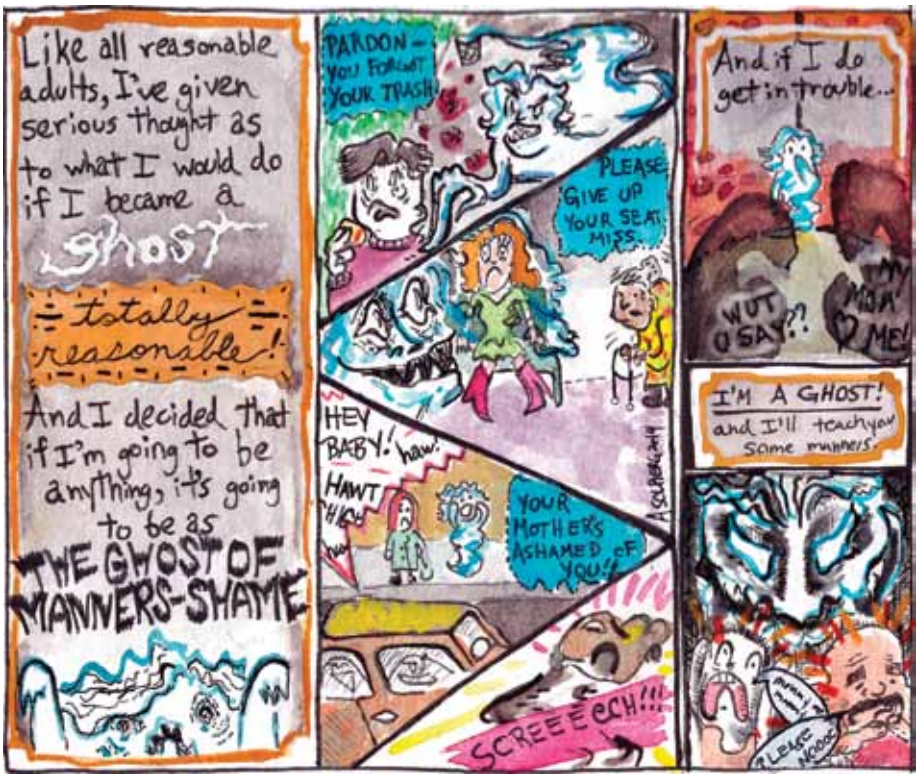 Like all reasonable
adults, I've given
serious thought as
to what I would do
if I became a
ghost
totally
reasonable!
And I decided that
if I'm going to be
anything, it's going
to be as
THE GHOST OF
MANNERS-SHAME
PARDON-
YOU FORGOT
YOUR TRASH
PLEASE
GIVE UP
YOUR SEAT,
MISS
A SOLBERG 2014
HEY
BABY!
haw!
HAWT
YOUR
MOTHER'S
ASHAMED OF
YOU!!
SCREEECCH!!!
And if I do
get in trouble...
WUT
U SAY??
MY
MOM
♡ ME!
I'M A GHOST!
and I'll teach you
some manners.
PLEASE
NOOOO